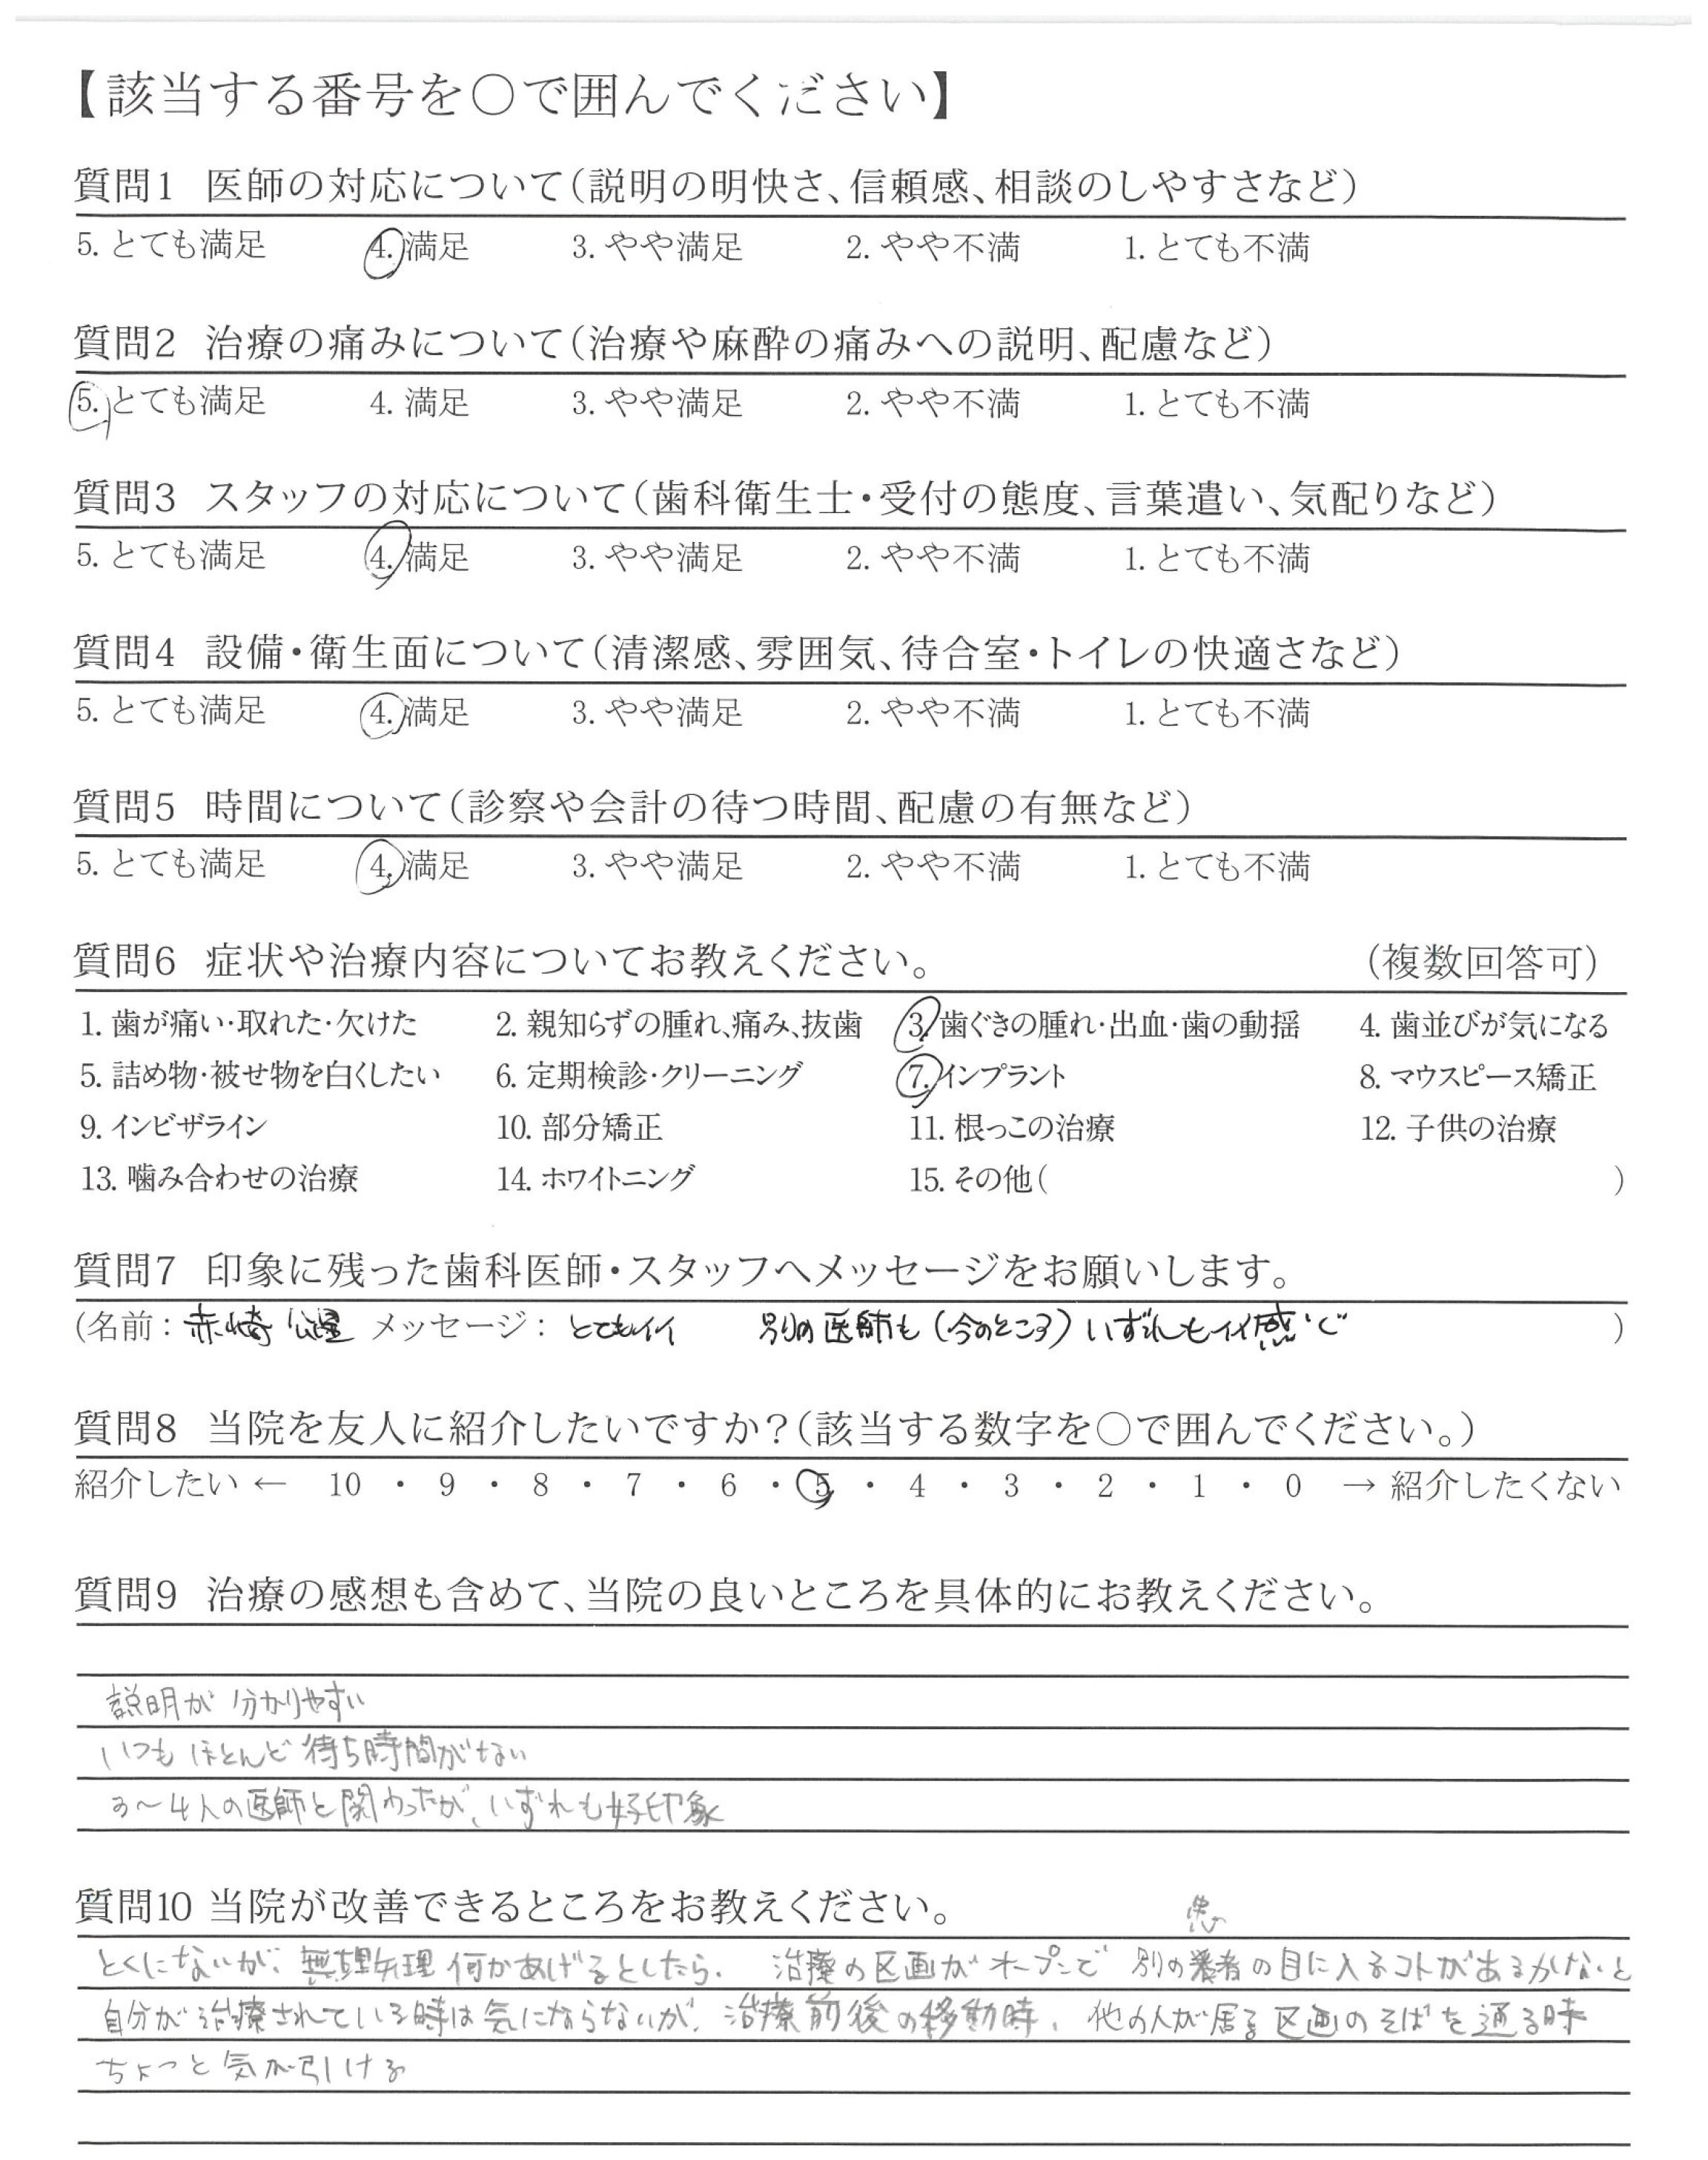 【該当する番号を○で囲んでください】
質問1 医師の対応について(説明の明快さ、信頼感、相談のしやすさなど)
5. とても満足 4. 満足 3. やや満足 2. やや不満 1. とても不満
質問2 治療の痛みについて(治療や麻酔の痛みへの説明、配慮など)
5. とても満足 4. 満足 3. やや満足 2. やや不満 1. とても不満
質問3 スタッフの対応について(歯科衛生士・受付の態度、言葉遣い、気配りなど)
5. とても満足 4. 満足 3. やや満足 2. やや不満 1. とても不満
質問4 設備・衛生面について(清潔感、雰囲気、待合室・トイレの快適さなど)
5. とても満足 4. 満足 3. やや満足 2. やや不満 1. とても不満
質問5 時間について(診察や会計の待つ時間、配慮の有無など)
5. とても満足 4. 満足 3. やや満足 2. やや不満 1. とても不満
質問6 症状や治療内容についてお教えください。 (複数回答可)
1. 歯が痛い・取れた・欠けた 2. 親知らずの腫れ、痛み、抜歯 3. 歯ぐきの腫れ・出血・歯の動揺 4. 歯並びが気になる
5. 詰め物・被せ物を白くしたい 6. 定期検診・クリーニング 7. インプラント 8. マウスピース矯正
9. インビザライン 10. 部分矯正 11. 根っこの治療 12. 子供の治療
13. 噛み合わせの治療 14. ホワイトニング 15. その他( )
質問7 印象に残った歯科医師・スタッフへメッセージをお願いします。
(名前: 赤崎 メッセージ: とてもイイ 別の医師も(今のところ)いずれもイイ感じ )
質問8 当院を友人に紹介したいですか?(該当する数字を○で囲んでください。)
紹介したい ← 10 ・ 9 ・ 8 ・ 7 ・ 6 ・ 5 ・ 4 ・ 3 ・ 2 ・ 1 ・ 0 → 紹介したくない
質問9 治療の感想も含めて、当院の良いところを具体的にお教えください。
説明が分かりやすい
いつもほとんど待ち時間がない
3〜4人の医師と関わったが、いずれも好印象
質問10 当院が改善できるところをお教えください。
患
とくにないが、無理矢理何かあげるとしたら、治療の区画がオープンで別の者の目に入るコトがあるかなと
自分が治療されている時は気にならないが、治療前後の移動時、他の人が居る区画のそばを通る時
ちょっと気が引ける